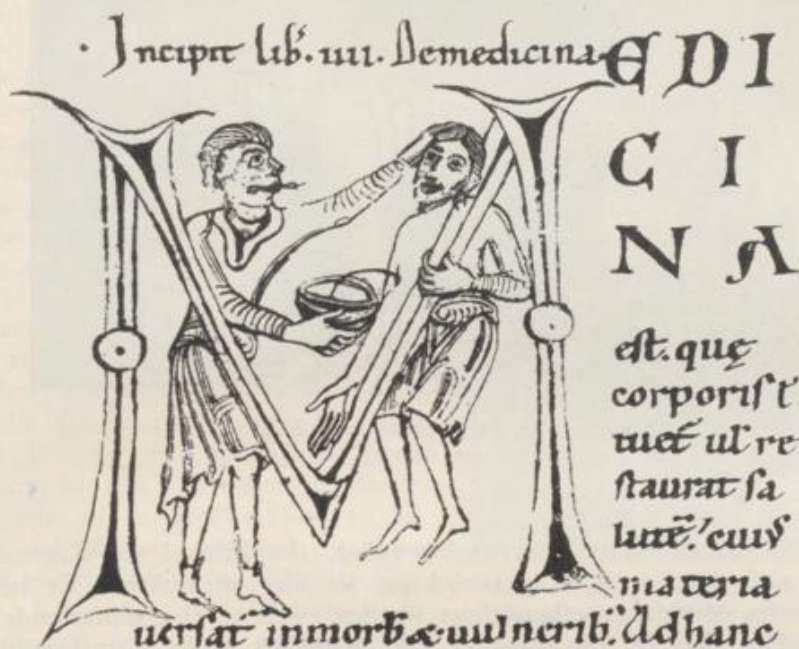 · Incipit lib̄. iiii. De medicina
M EDI
CI
NA
est. quę
corporis t̄
tuet̄ ul̄ re
staurat sa
lutē; cuiꝰ
materia
uersat̄ in morb̄ & uulnerib̄. Ad hanc